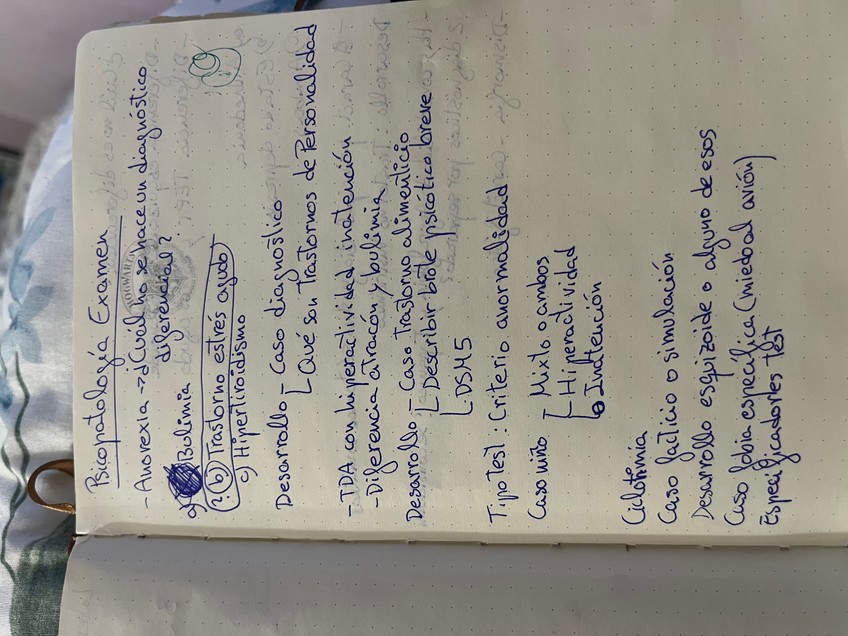 Psicopatología Examen
- Anorexia → ¿Cuál no se hace un diagnóstico
diferencial?
a) Bulimia
?(b) Trastorno estrés agudo
c) Hipertiroidismo
Desarrollo - Caso diagnóstico
Qué son Trastornos de Personalidad
- TDA con hiperactividad inatención
- Diferencia atracón y bulimia
Desarrollo - Caso Trastorno alimenticio
Describir brote psicótico breve
DSM 5
Tipo test: Criterio anormalidad
Caso niño - Mixto o ambos
Hiperactividad
Inatención
Ciclotimia
Caso facticio o simulación
Desarrollo esquizoide o alguno de esos
Caso fobia específica (miedo al avión)
Especificadores test